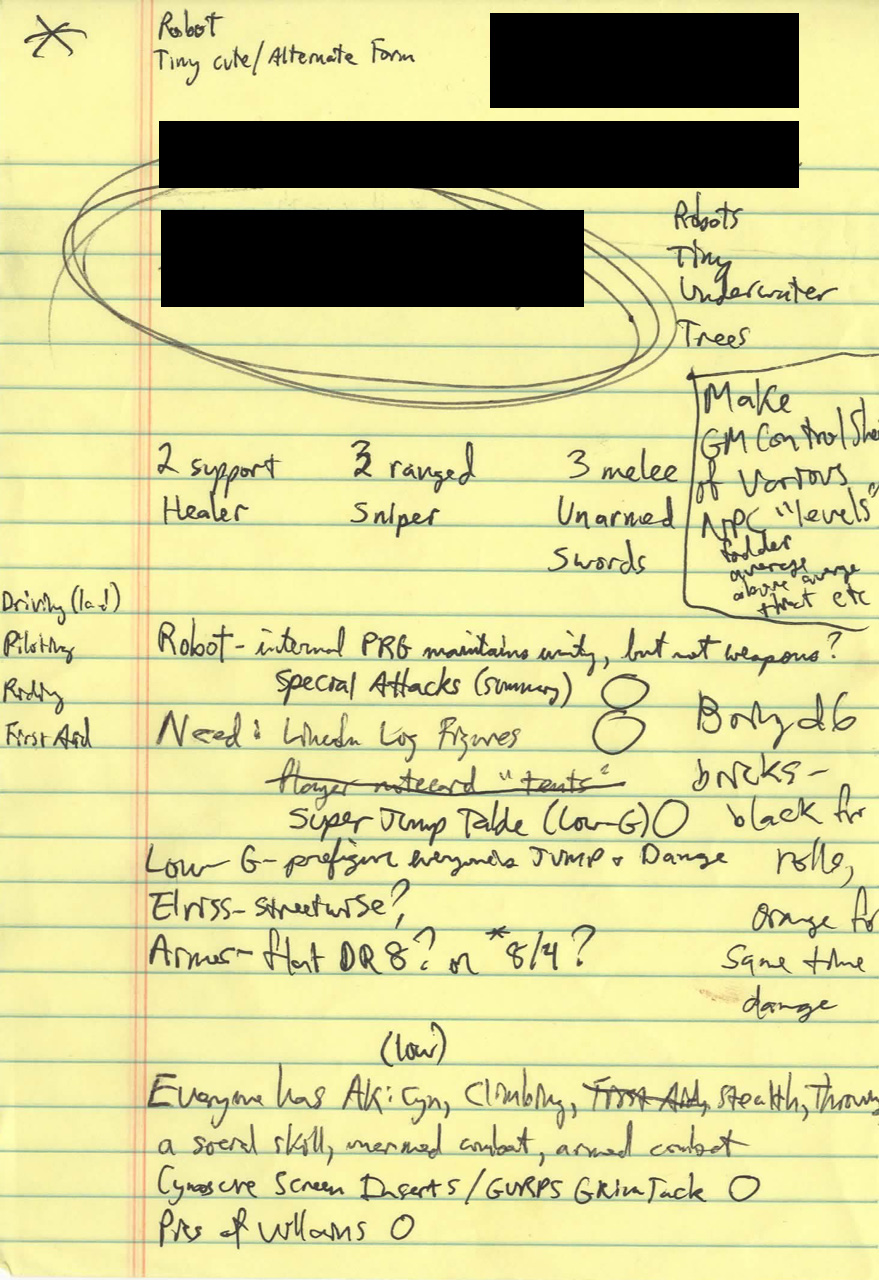 Robot
Tiny cute/Alternate Form
Robots
Tiny
Underwater
Trees
Make
GM Control She
of Various
NPC "levels"
fodder
average
above average
threat etc
2 support
Healer
3 ranged
Sniper
3 melee
Unarmed
Swords
Driving (land)
Piloting
Riding
First Aid
Robot- internal PRG maintains unity, but not weapons?
Special Attacks (summary)
Need: Lincoln Log Figures
Player notecard "tents"
Super Jump Table (Low-G)
Bring d6
bricks-
black for
rolls,
orange for
same time
damage
Low G- prefigure everyone's JUMP + Damage
Elriss- streetwise?,
Armor- flat DR 8? or *8/4?
(low)
Everyone has AK: Cyn, Climbing, First Aid, stealth, Throwing
a social skill, unarmed combat, armed combat
Cynosure Screen Inserts/GURPS GrimJack
Pics of Villains